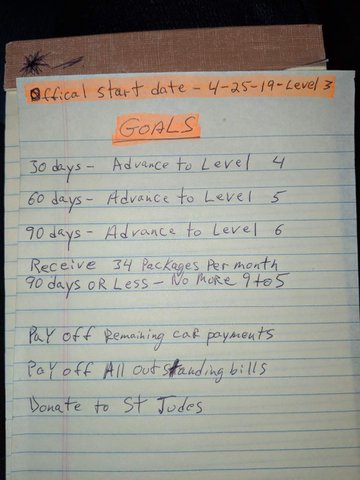 Offical start date - 4-25-19-Level 3
GOALS
30 days - Advance to Level 4
60 days - Advance to Level 5
90 days - Advance to Level 6
Receive 34 Packages Per month
90 days OR Less - No More 9 to 5
Pay off Remaining car payments
Pay off All Outstanding bills
Donate to St Judes